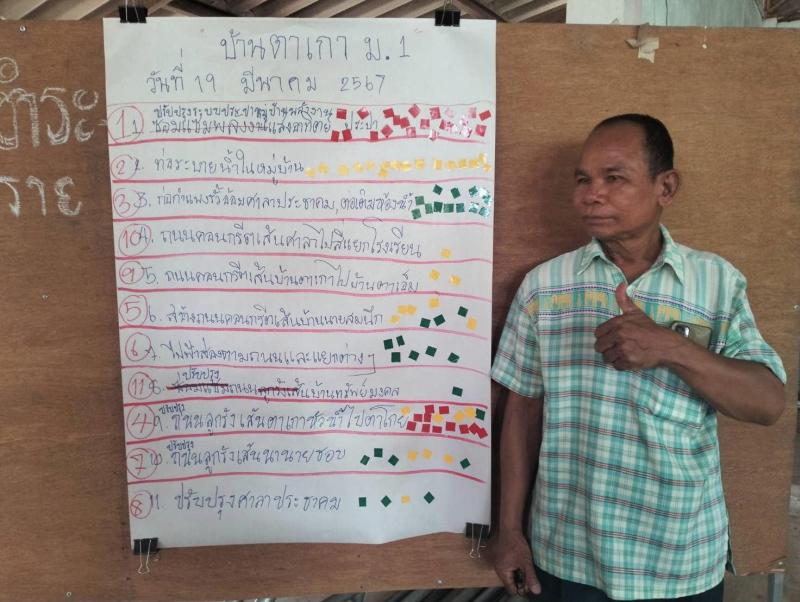 บ้านตาเกา ม.1
วันที่ 19 มีนาคม 2567
ปรับปรุงระบบประปาหมู่บ้านพลังงาน
1 1. ซ่อมแซมพลังงานแสงอาทิตย์ ประปา
2 2. ท่อระบายน้ำในหมู่บ้าน
3 3. ก่อกำแพงรั้วล้อมศาลาประชาคม, ต่อเติมห้องน้ำ
10 4. ถนนคอนกรีตเส้นศาลาไปสี่แยกโรงเรียน
9 5. ถนนคอนกรีตเส้นบ้านตาเกาไปบ้านตาเอ็ม
5 6. สร้างถนนคอนกรีตเส้นบ้านนายสมนึก
6 7. ไฟฟ้าส่องตามถนนและแยกต่างๆ
ปรับปรุง
11 8. ซ่อมแซมถนนลูกรังเส้นบ้านทรัพย์มงคล
ปรับปรุง
4 9. ถนนลูกรังเส้นตาเกา ไปตาโกย
ปรับปรุง
7 10. ถนนลูกรังเส้นนานายชอบ
8 11. ปรับปรุงศาลาประชาคม
ราย